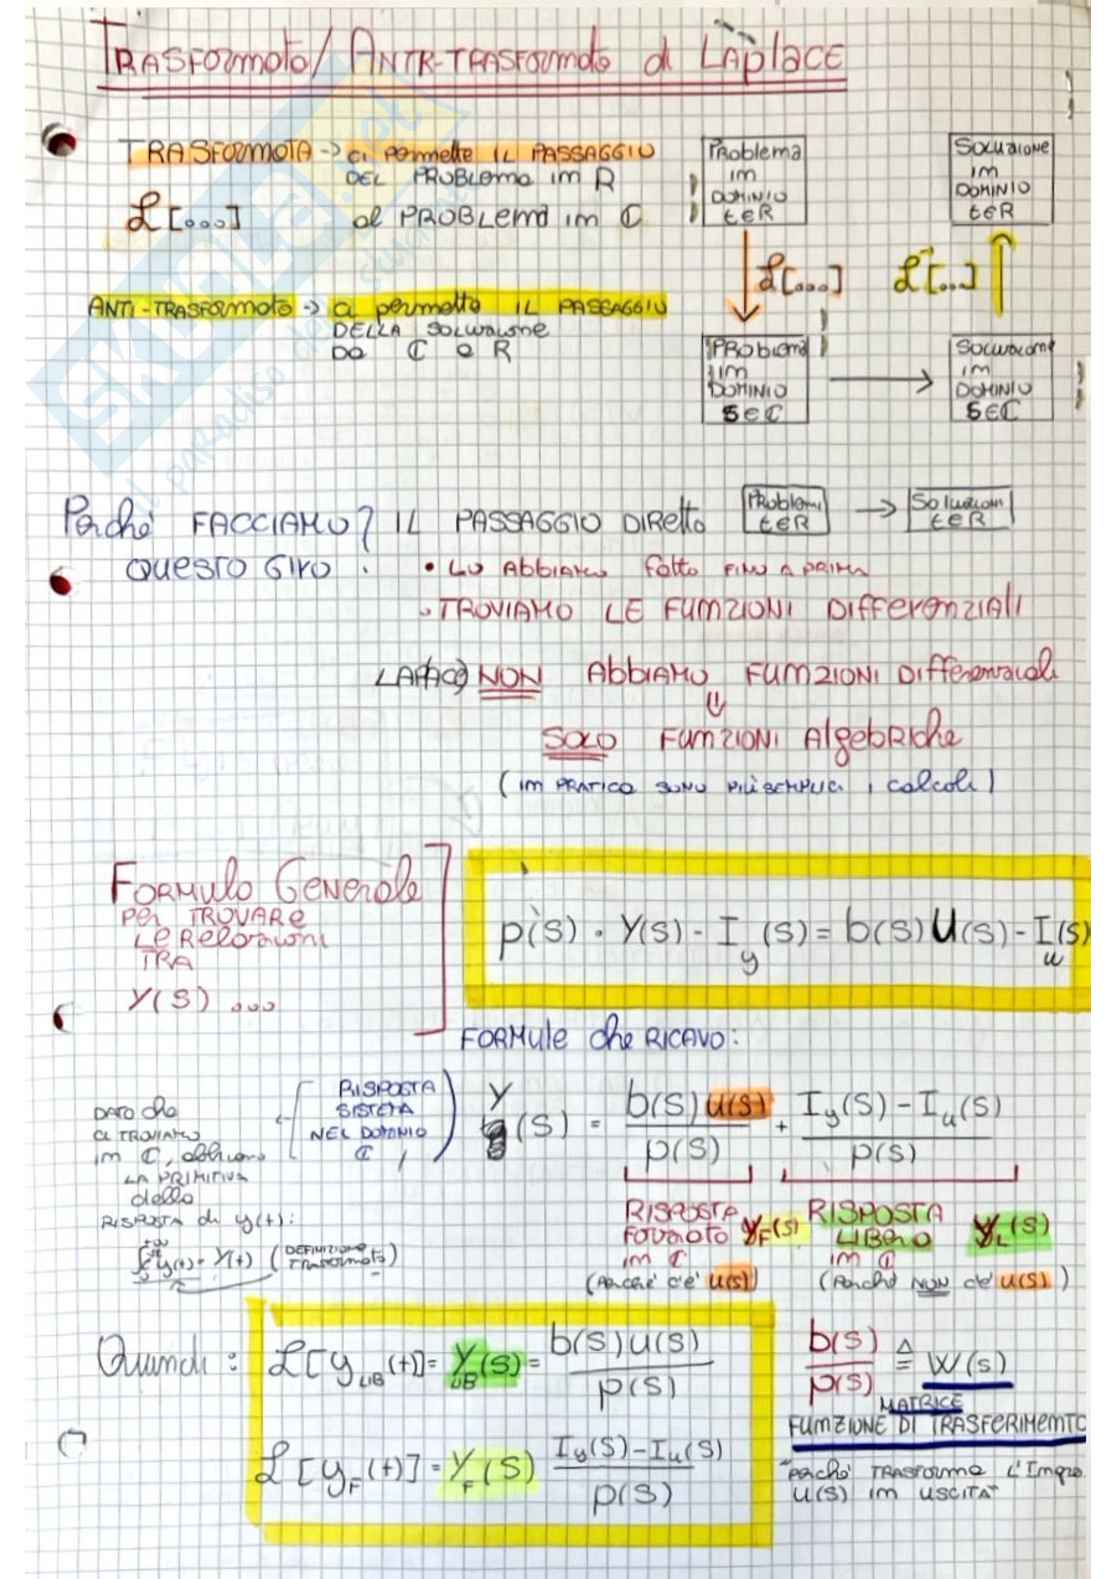 TRASFORMATA/ANTI-TRASFORMATA di LAPLACE
TRASFORMATA -> ci permette IL PASSAGGIO
DEL PROBLEMA im R
al PROBLEMA im ℂ
ℒ[...]
Problema
im
DOMINIO
t∈R
SOLUZIONE
im
DOMINIO
t∈R
ℒ[...]
ℒ⁻¹[...]
ANTI-TRASFORMATA -> ci permette IL PASSAGGIO
DELLA SOLUZIONE
DA ℂ a R
PROBLEMA
im
DOMINIO
S∈ℂ
Soluzione
im
DOMINIO
S∈ℂ
Perché FACCIAMO
QUESTO GIRO ?
IL PASSAGGIO DIRETTO
Problemi
t∈R
->
Soluzioni
t∈R
• LO ABBIAMO fatto FINO A PRIMA
• TROVIAMO LE FUMZIONI Differenziali
LAPLACE) NON Abbiamo FUMZIONI Differenziali
⇓
SOLO FUMZIONI Algebriche
(im PRATICA SONO PIÙ SEMPLICI i calcoli)
Formula Generale
per TROVARE
Le Relazioni
TRA
Y(S) ...
p(s) · Y(s) - I_y(s) = b(s)U(s) - I_u(s)
FORMule che RICAVO:
DATO che
ci TROVIAMO
im ℂ, abbiamo
LA PRIMITIVA
della
RISPOSTA di y(t):
(DEFINIZIONE
TRASFORMATA)
RISPOSTA
SISTEMA
NEL DOMINIO
ℂ
Y(S) = b(s)u(s)/p(s) + I_y(S) - I_u(S)/p(s)
RISPOSTA
FORZATA Y_F(S)
im ℂ
(Perché c'è u(s))
RISPOSTA
LIBERA Y_L(S)
im ℂ
(Perché NON c'è u(s))
Quindi :
ℒ[y_LIB(t)] = Y_LIB(S) = b(s)u(s)/p(s)
ℒ[y_F(t)] = Y_F(S) I_y(S) - I_u(S)/p(s)
b(s)/p(s) ≜ W(s)
MATRICE
FUMZIONE DI TRASFERIMEMTO
perché TRASFORMA L'Ingre.
u(s) im USCITA
SKUOLA.net
il paradiso dello studente